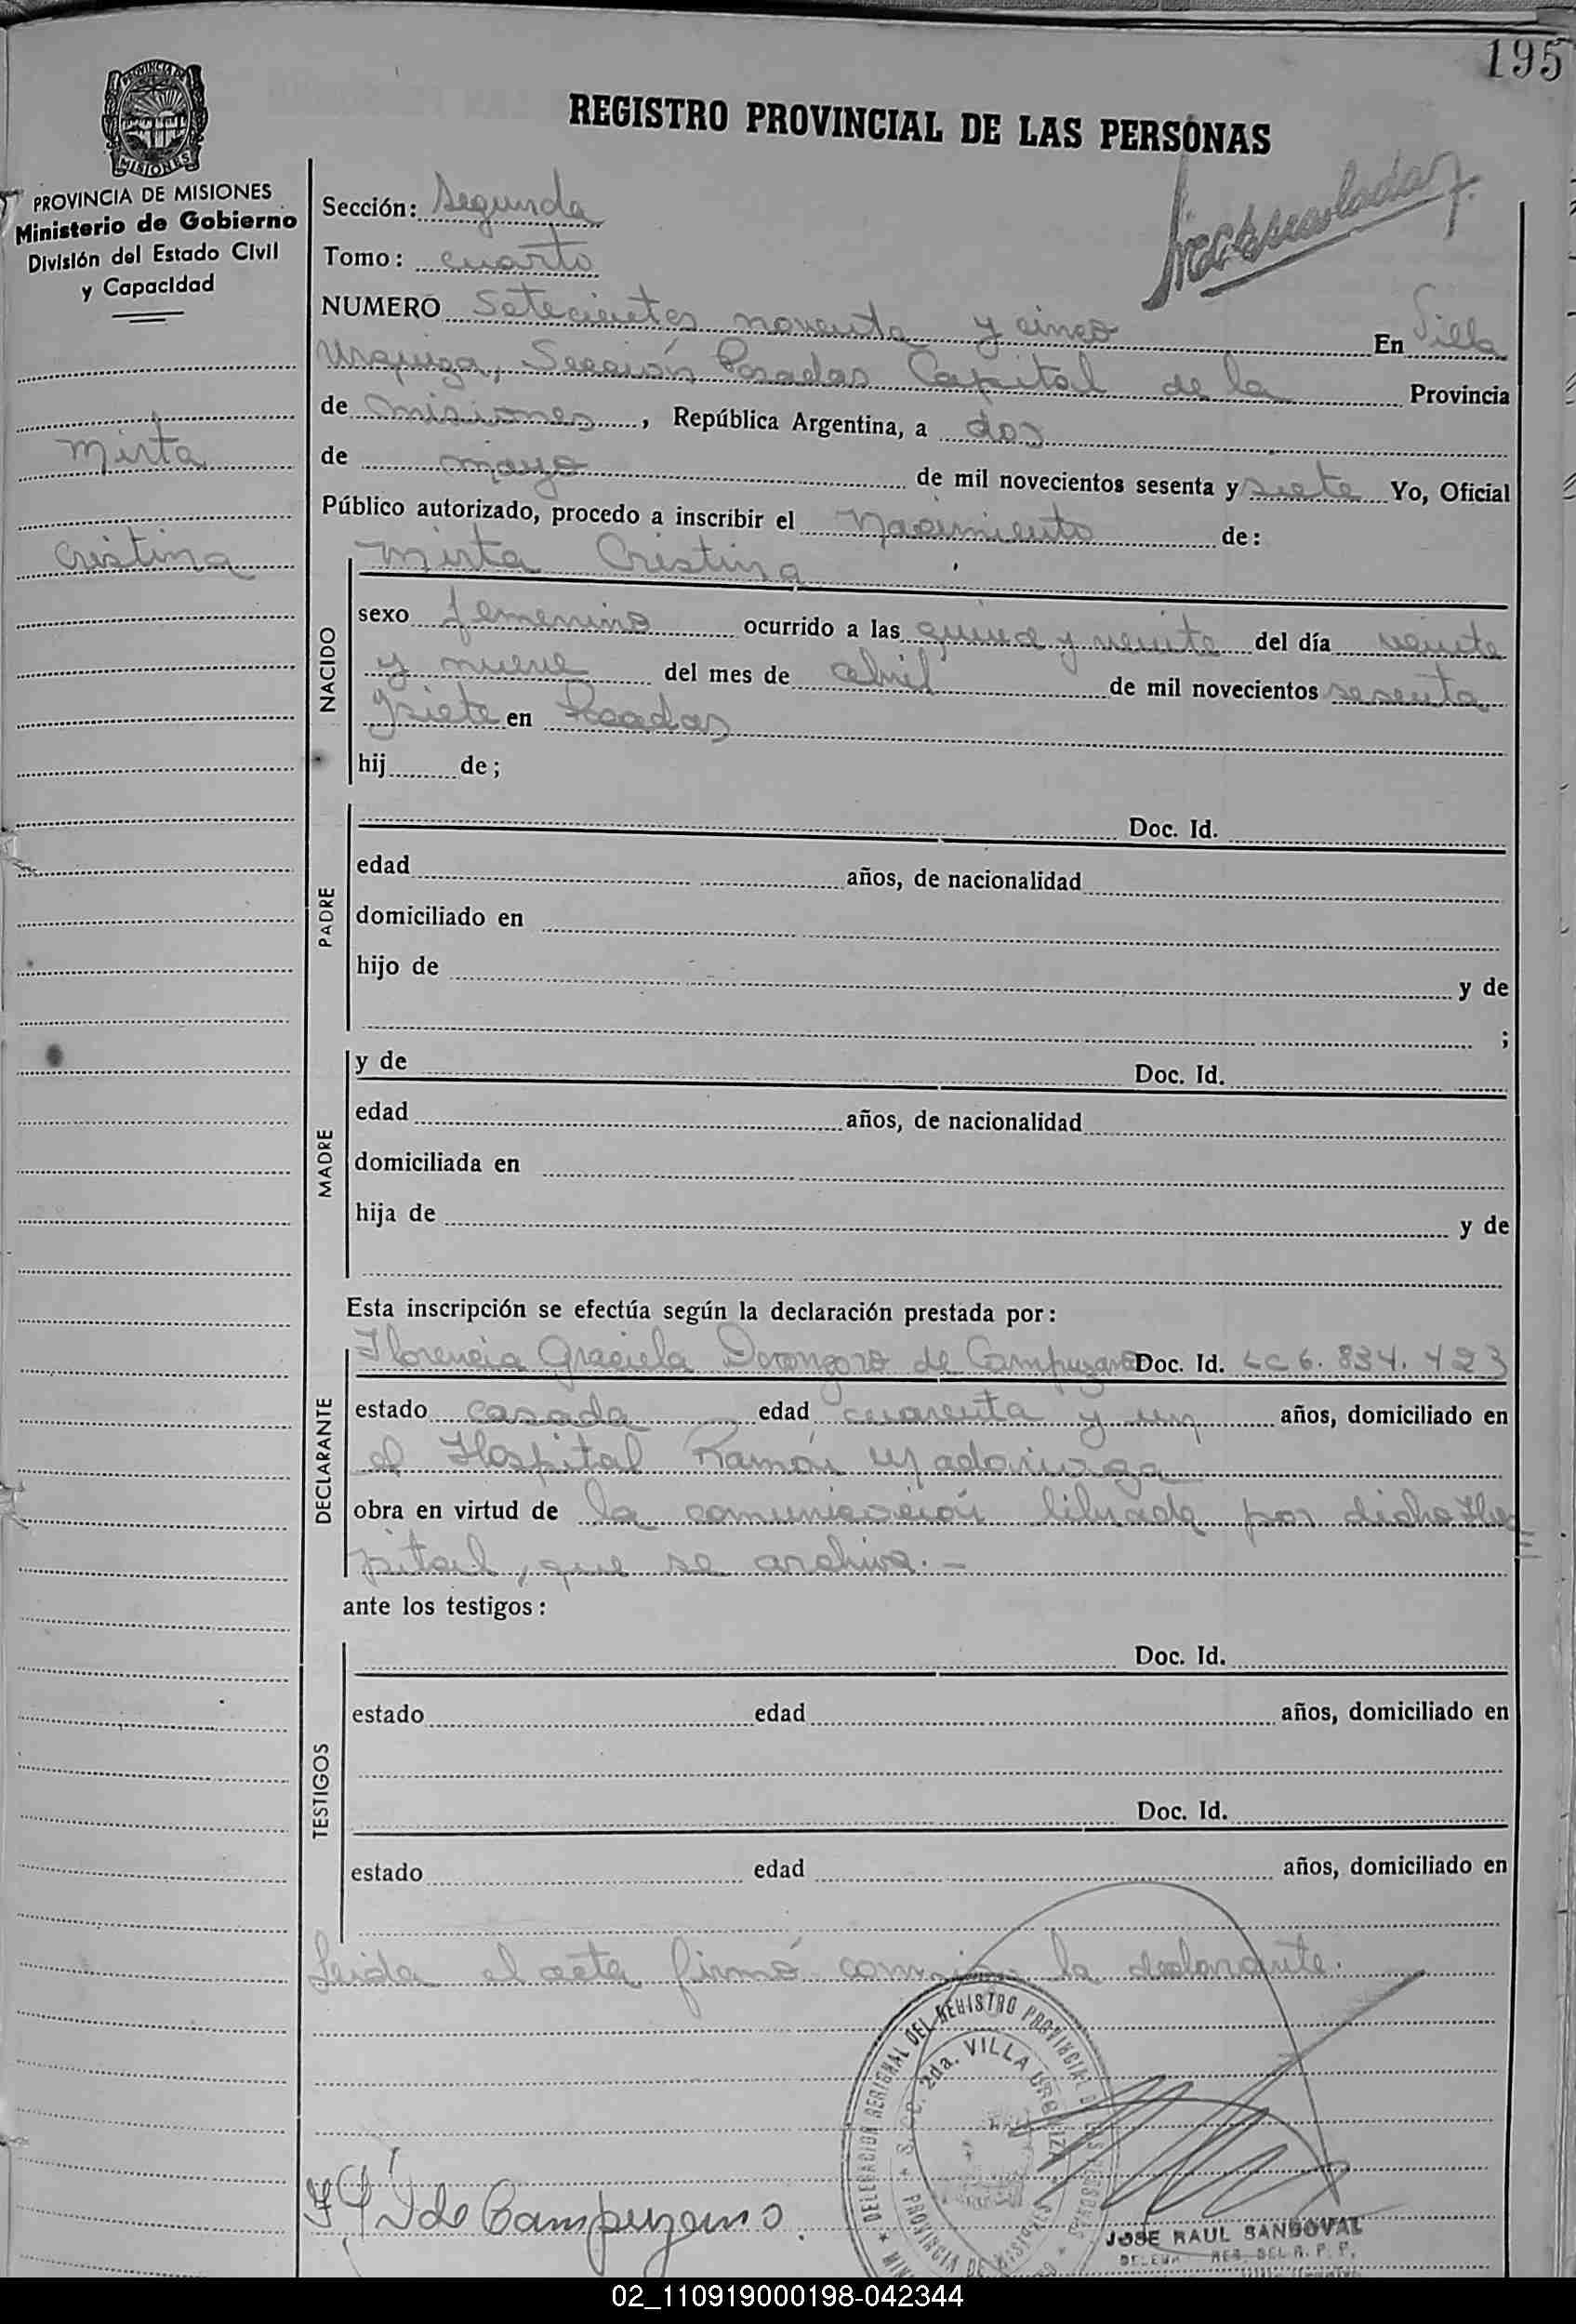 195
PROVINCIA DE
MISIONES
REGISTRO PROVINCIAL DE LAS PERSONAS
PROVINCIA DE MISIONES
Ministerio de Gobierno
División del Estado Civil
y Capacidad
Sección: Segunda
Tomo: cuarto
NUMERO Setecientos noventa y cinco En Villa
Urquiza, Sección Posadas Capital de la Provincia
de misiones, República Argentina, a dos
de mayo de mil novecientos sesenta y siete Yo, Oficial
Público autorizado, procedo a inscribir el Nacimiento de:
Mirta
Cristina
NACIDO
Mirta Cristina
sexo femenino ocurrido a las quince y veinte del día veinte
y nueve del mes de abril de mil novecientos sesenta
y siete en Posadas
hij de;
PADRE
Doc. Id.
edad años, de nacionalidad
domiciliado en
hijo de y de
;
MADRE
y de Doc. Id.
edad años, de nacionalidad
domiciliada en
hija de y de
Esta inscripción se efectúa según la declaración prestada por:
DECLARANTE
Florencia Graciela de Campuzano Doc. Id. LC 6.834.423
estado casada edad cuarenta y un años, domiciliado en
el Hospital Ramón Madariaga
obra en virtud de la comunicación librada por dicho Hos
pital, que se archiva.-
ante los testigos:
TESTIGOS
Doc. Id.
estado edad años, domiciliado en
Doc. Id.
estado edad años, domiciliado en
Leida el acta firmó conmigo la declarante.
DELEGACION REGIONAL DEL REGISTRO PROVINCIAL DE LAS PERSONAS
SECC. 2da. VILLA URQUIZA
PROVINCIA DE MISIONES
de Campuzano.
JOSE RAUL SANDOVAL
DELEG. REG. DEL R. P. P.
02_110919000198-042344